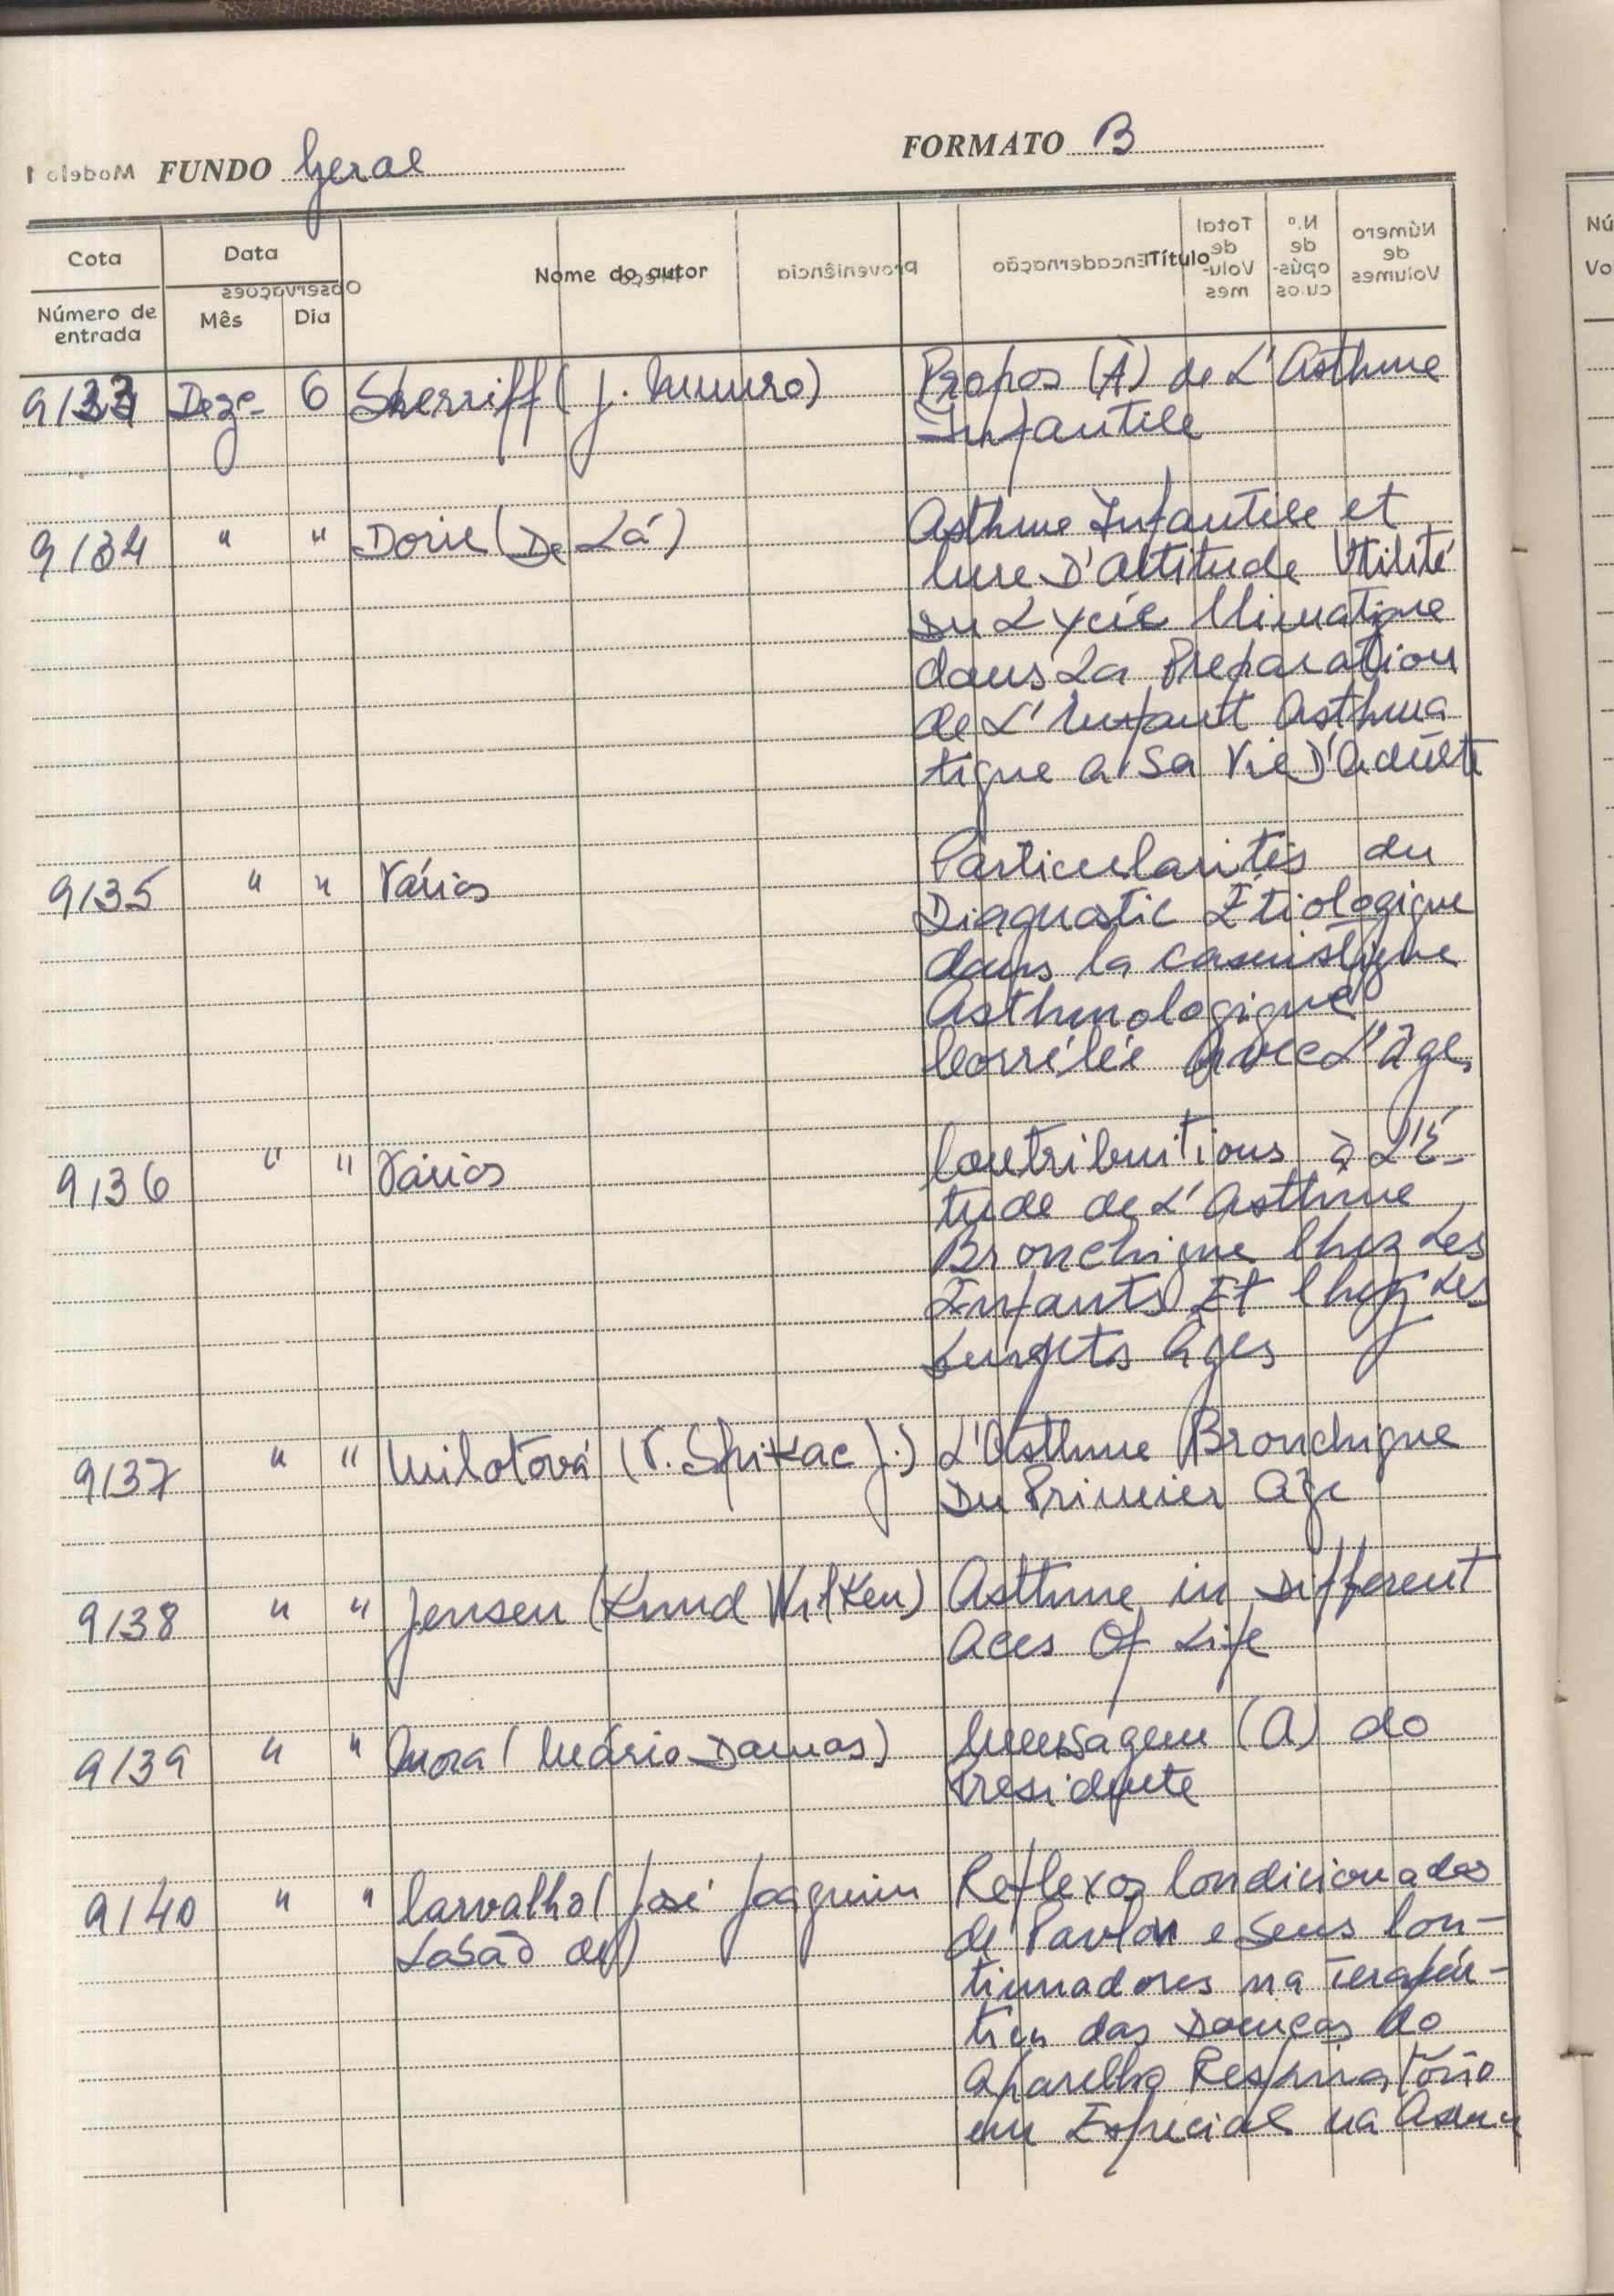 FUNDO Geral FORMATO B
Modelo 1
Cota Data Nome do autor Título
Número de entrada Mês Dia
Observações Preço proveniência Encadernação Total de Volumes N.º de opúsculos Número de Volumes
9133 Deze 6 Sherriff (J. Munro) Propos (À) de L'Asthme
Infantile
9134 " " Dorie (De Lá) Asthme Infantile et
Cure D'Altitude Utilité
Du Lycée Climatique
dans La Preparation
de L'Enfant Asthma
tique a Sa Vie D'adulte
9135 " " Vários Particularités du
Diagnostic Étiologique
dans la casuistique
Asthmologique
Corrélée Avec L'âge
9136 " " Vários Contribuitions à L'É-
tude de L'Asthme
Bronchique Chez Les
Enfants Et Chez Les
Sujets Âges
9137 " " Milotová (V. Spikac J.) L'Asthme Bronchique
Du Primier Age
9138 " " Jensen (Knud Wilken) Asthme in Different
Aces Of Life
9139 " " Mora (Mário Damas) Mensagem (A) do
Presidente
9140 " " Carvalho (José Joaquim Reflexos Condicionados
de Pavlov e Seus Con-
tinuadores na Terapêu-
tica das Doenças do
Aparelho Respiratório
em Especial na Asma